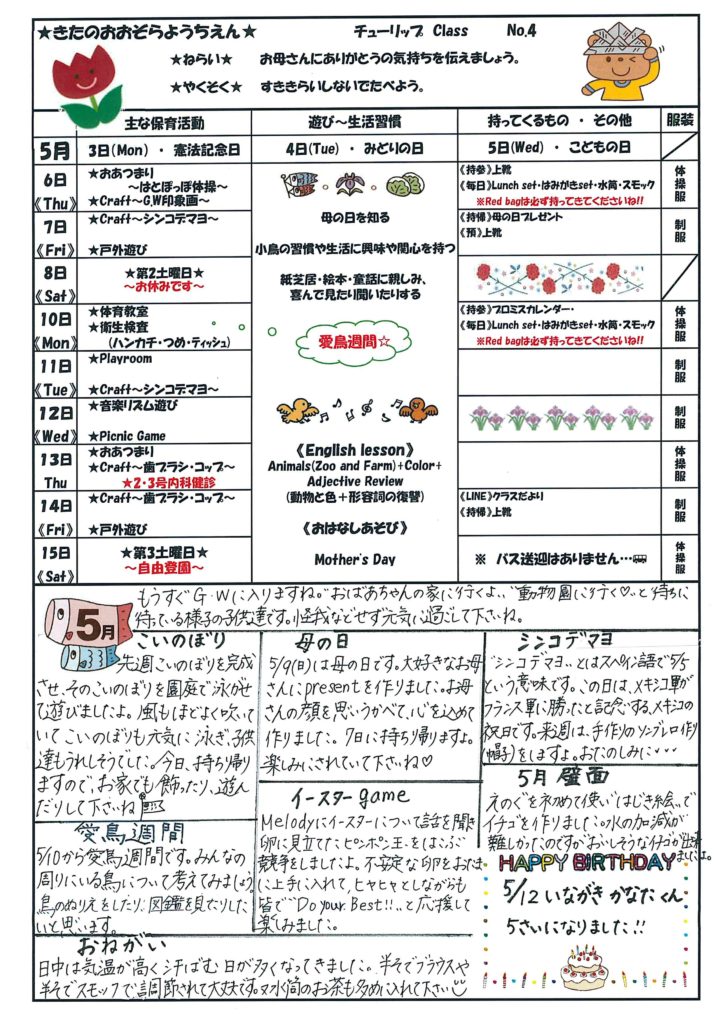 ★きたのおおぞらようちえん★
チューリップ Class No.4
★ねらい★ お母さんにありがとうの気持ちを伝えましょう。
★やくそく★ すききらいしないでたべよう。
主な保育活動 遊び～生活習慣 持ってくるもの ・ その他 服装
5月 3日(Mon) ・ 憲法記念日 4日(Tue) ・ みどりの日 5日(Wed) ・ こどもの日
6日
《Thu》
★おあつまり
～はとぽっぽ体操～
★Craft～G,W印象画～
《持参》上靴
《毎日》Lunch set・はみがきset・水筒・スモック
※Red bagは必ず持ってきてくださいね!!
体操服
7日
《Fri》
★Craft～シンコデマヨ～
★戸外遊び
《持帰》母の日プレゼント
《預》上靴
制服
8日
《Sat》
★第2土曜日★
～お休みです～
母の日を知る
小鳥の習慣や生活に興味や関心を持つ
紙芝居・絵本・童話に親しみ、
喜んで見たり聞いたりする
10日
《Mon》
★体育教室
★衛生検査
(ハンカチ・つめ・ティッシュ)
愛鳥週間☆
《持参》プロミスカレンダー・
《毎日》Lunch set・はみがきset・水筒・スモック
※Red bagは必ず持ってきてくださいね!!
体操服
11日
《Tue》
★Playroom
★Craft～シンコデマヨ～
制服
12日
《Wed》
★音楽リズム遊び
★Picnic Game
制服
13日
Thu
★おあつまり
★Craft～歯ブラシ・コップ～
★2・3号内科健診
体操服
《English lesson》
Animals(Zoo and Farm)+Color+
Adjective Review
(動物と色＋形容詞の復讐)
14日
《Fri》
★Craft～歯ブラシ・コップ～
★戸外遊び
《おはなしあそび》
《LINE》クラスだより
《持帰》上靴
制服
15日
《Sat》
★第3土曜日★
～自由登園～
Mother's Day
※ バス送迎はありません…
体操服
5月
もうすぐG・Wに入りますね。"おばあちゃんの家に行くよ"、"動物園に行く♡"と待ちに
待っている様子の子供達です。怪我などせず元気に過ごして下さいね。
こいのぼり
先週こいのぼりを完成
させ、そのこいのぼりを園庭で泳がせ
て遊びましたよ。風もほどよく吹いて
いてこいのぼりも元気に泳ぎ、子供
達もうれしそうでした。今日、持ち帰り
ますので、お家でも飾ったり、遊ん
だりして下さいね
母の日
5/9(日)は母の日です。大好きなお母
さんにpresentを作りました。お母
さんの顔を思いうかべて、心を込めて
作りました。7日に持ち帰りますよ。
楽しみにされていて下さいね♡
シンコデマヨ
"シンコデマヨ"とはスペイン語で5/5
という意味です。この日は、メキシコ軍が
フランス軍に勝ったと記念する、メキシコの
祝日です。来週は、手作りのソンブレロ作り
(帽子)をしますよ。おたのしみに・・・
愛鳥週間
5/10から愛鳥週間です。みんなの
周りにいる鳥について考えてみましょう
鳥のぬりえをしたり、図鑑を見たりした
いと思います。
イースターgame
Melodyにイースターについて話を聞き
卵に見立てたピンポン玉をはこぶ
競争をしましたよ。不安定な卵をおたま
に上手に入れて、ヒヤヒヤとしながらも
皆で"Do your Best!!"と応援して
楽しみました。
5月 壁面
えのぐを初めて使い"はじき絵"で
イチゴを作りました。水の加減が
難しかったのですが、おいしそうなイチゴが出来
ましたよ。
HAPPY BIRTHDAY
5/12 いながき かなた くん
5さいになりました!!
おねがい
日中は気温が高く汗ばむ日が多くなってきました。半そでブラウスや
半そでスモックで調節されて大丈夫です。又水筒のお茶も多めに入れて下さい